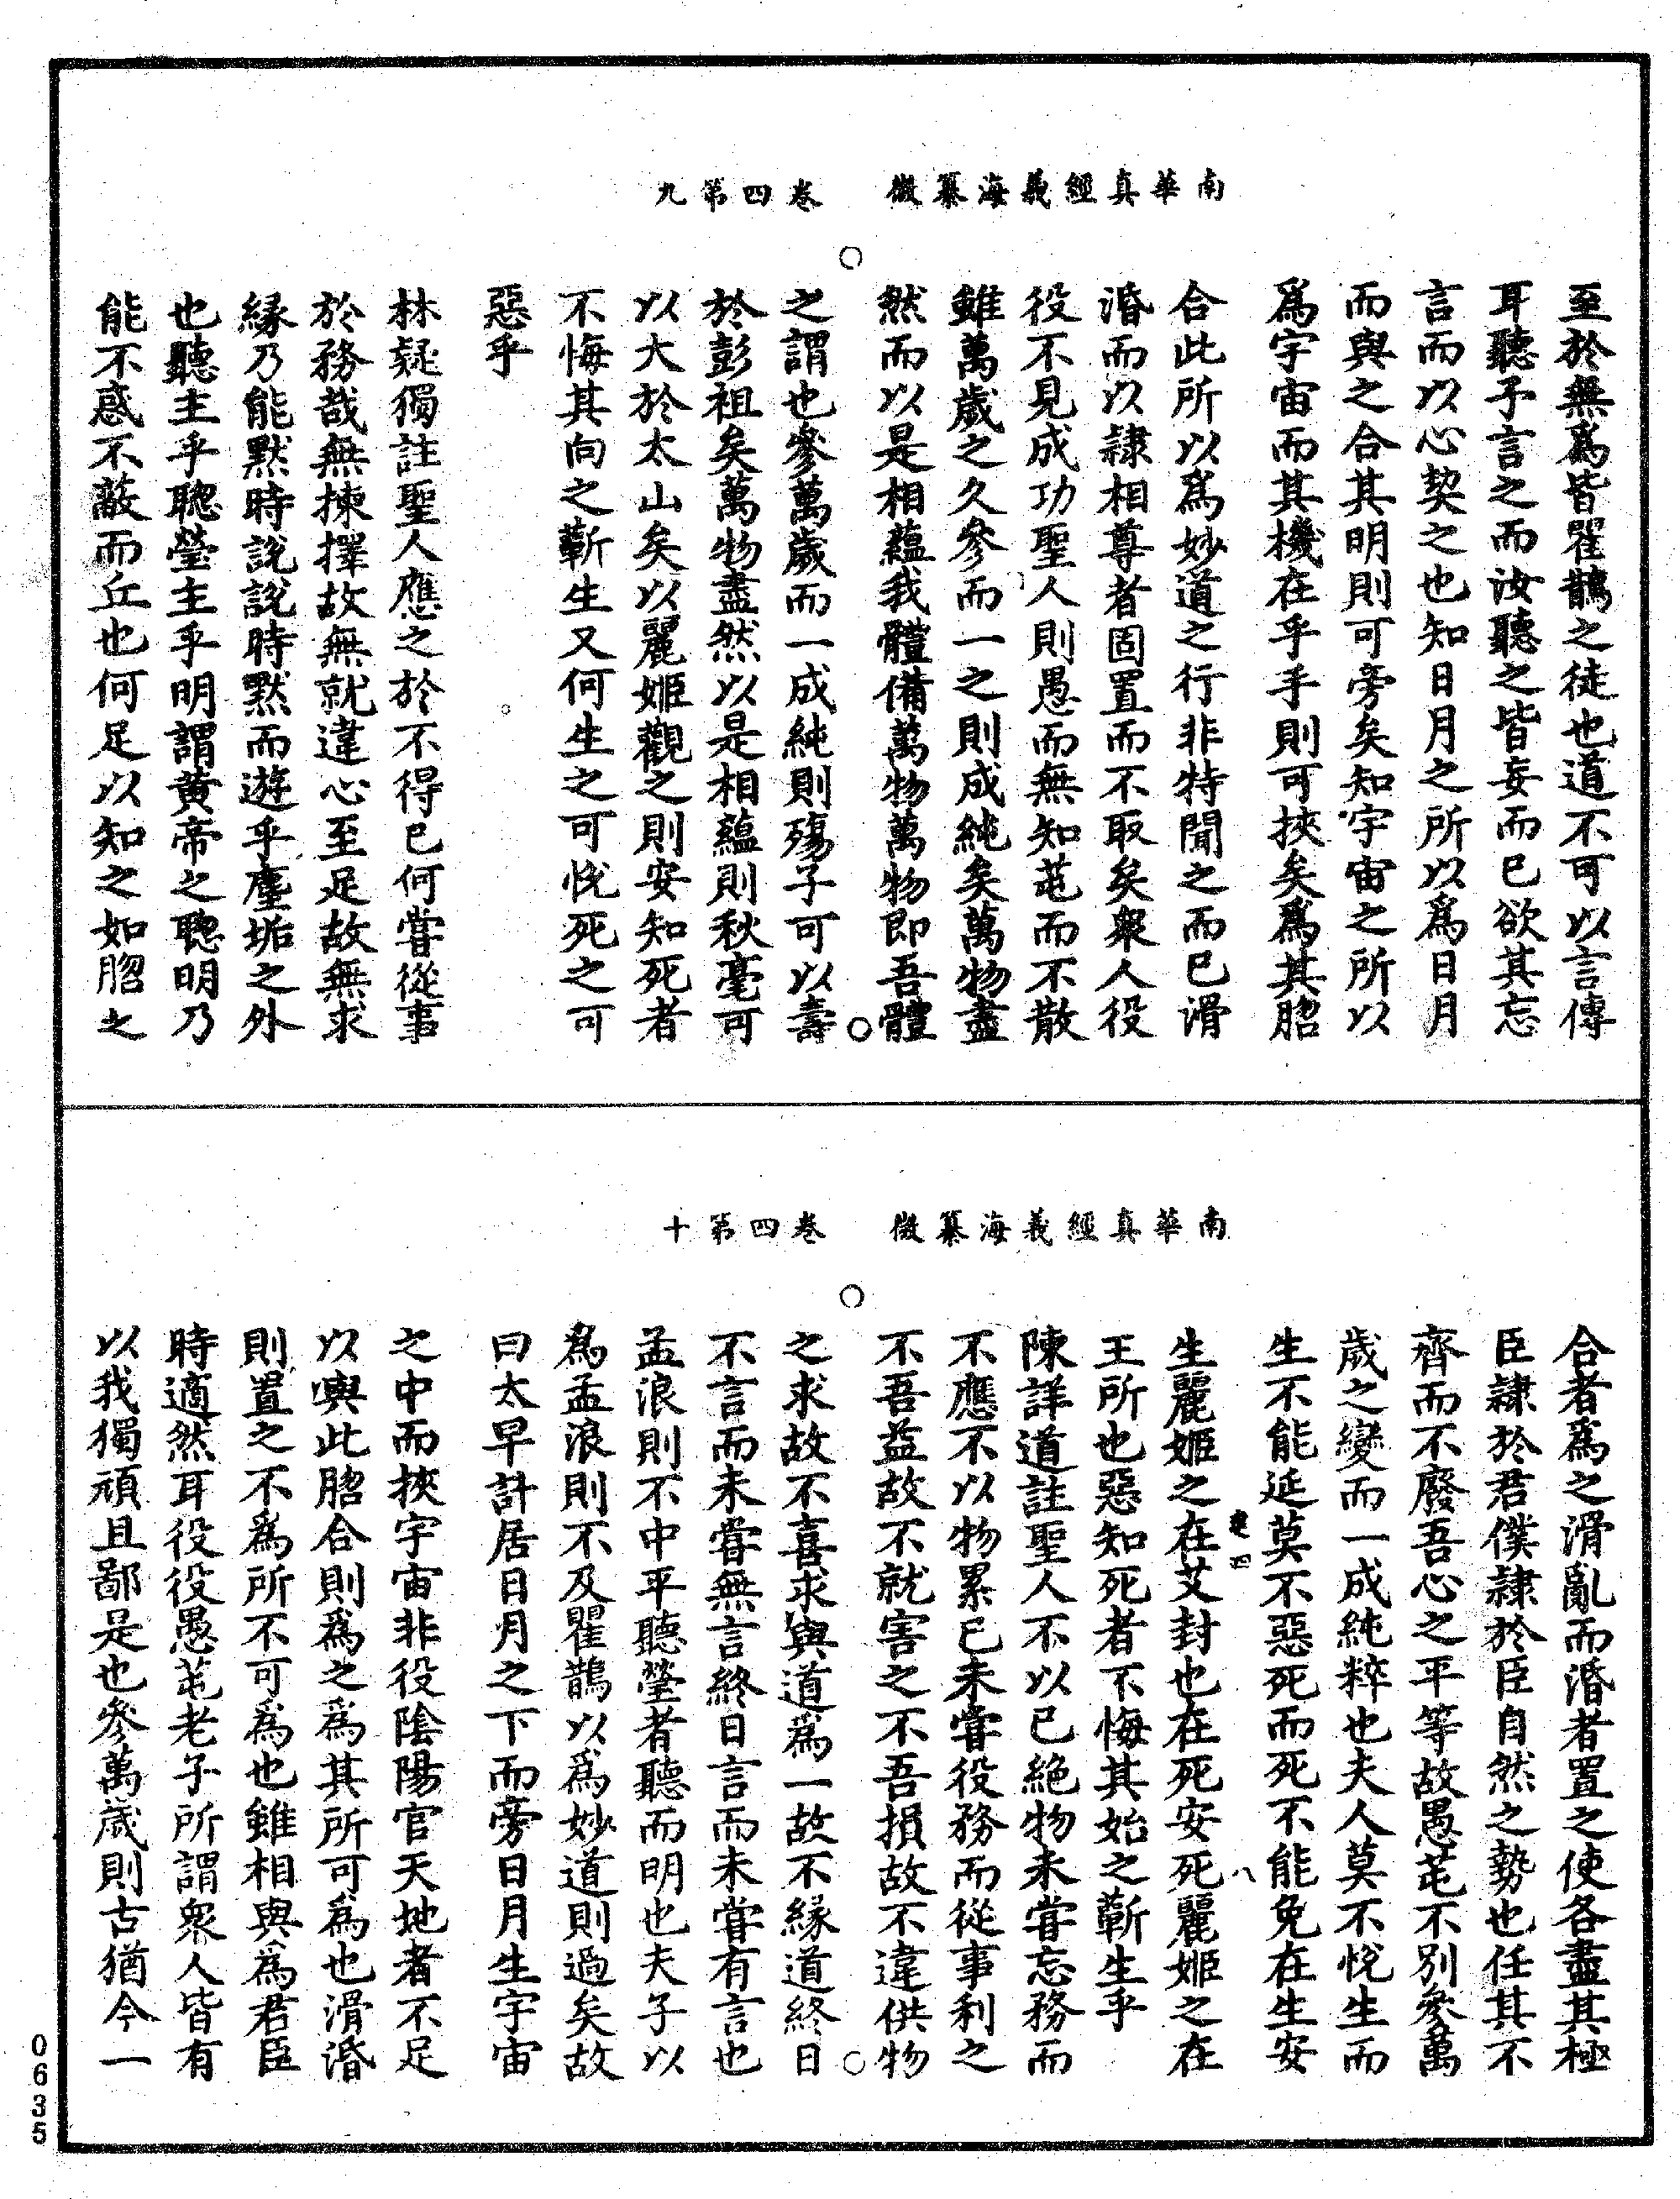 南華真經義海纂微　卷四第九
至於無爲皆瞿鵲之徒也道不可以言傳
耳聽予言之而汝聽之皆妄而已欲其忘
言而以心契之也知日月之所以爲日月
而與之合其明則可旁矣知宇宙之所以
爲宇宙而其機在乎手則可挾矣爲其脗
合此所以爲妙道之行非特聞之而已滑
涽而以隷相尊者固置而不取矣衆人役
役不見成功聖人則愚而無知芚而不散
雖萬歲之久參而一之則成純矣萬物盡
然而以是相藴我體備萬物萬物即吾體
之謂也參萬歲而一成純則殤子可以壽
於彭祖矣萬物盡然以是相藴則秋毫可
以大於太山矣以麗姬觀之則安知死者
不悔其向之蘄生又何生之可悅死之可
惡乎
林疑獨註聖人應之於不得已何嘗從事
於務哉無揀擇故無就違心至足故無求
緣乃能默時說說時默而遊乎塵垢之外
也聽主乎聰瑩主乎明謂黄帝之聰明乃
能不惑不蔽而丘也何足以知之如脗之
南華真經義海纂微　卷四第十
合者爲之滑亂而涽者置之使各盡其極
臣隷於君僕隷於臣自然之勢也任其不
齊而不廢吾心之平等故愚芚不別參萬
歲之變而一成純粹也夫人莫不悅生而
生不能延莫不惡死而死不能免在生安
生麗姬之在艾封也在死安死麗姬之在
王所也惡知死者不悔其始之蘄生乎
陳詳道註聖人不以已絶物未嘗忘務而
不應不以物累已未嘗役務而從事利之
不吾益故不就害之不吾損故不違供物
之求故不喜求與道爲一故不緣道終日
不言而未嘗無言終日言而未嘗有言也
孟浪則不中平聽瑩者聽而明也夫子以
爲孟浪則不及瞿鵲以爲妙道則過矣故
曰太早計居日月之下而旁日月生宇宙
之中而挾宇宙非役陰陽官天地者不足
以與此脗合則爲之爲其所可爲也滑涽
則置之不爲所不可爲也雖相與爲君臣
時適然耳役役愚芚老子所謂衆人皆有
以我獨頑且鄙是也參萬歲則古猶今一
四
八
0635